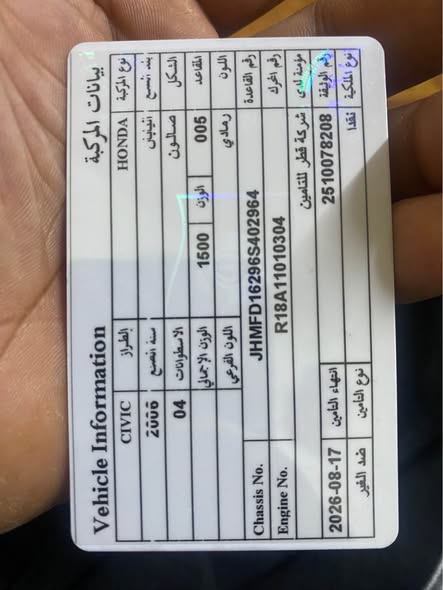 Vehicle Information بيانات المركبة
CIVIC الطراز HONDA نوع المركبة
2006 سنة الصنع اليابان بلد الصنع
04 الاسطوانات صالون الشكل
الوزن الإجمالي 1500 الوزن 005 المقاعد
اللون الفرعي رمادي اللون
Chassis No. JHMFD16296S402964 رقم القاعدة
Engine No. R18A11010304 رقم المحرك
شركة قطر للتامين مؤمنة لدى
2026-08-17 انتهاء التامين 2510078208 رقم الوثيقة
ضد الغير نوع التامين نقدا نوع الملكية